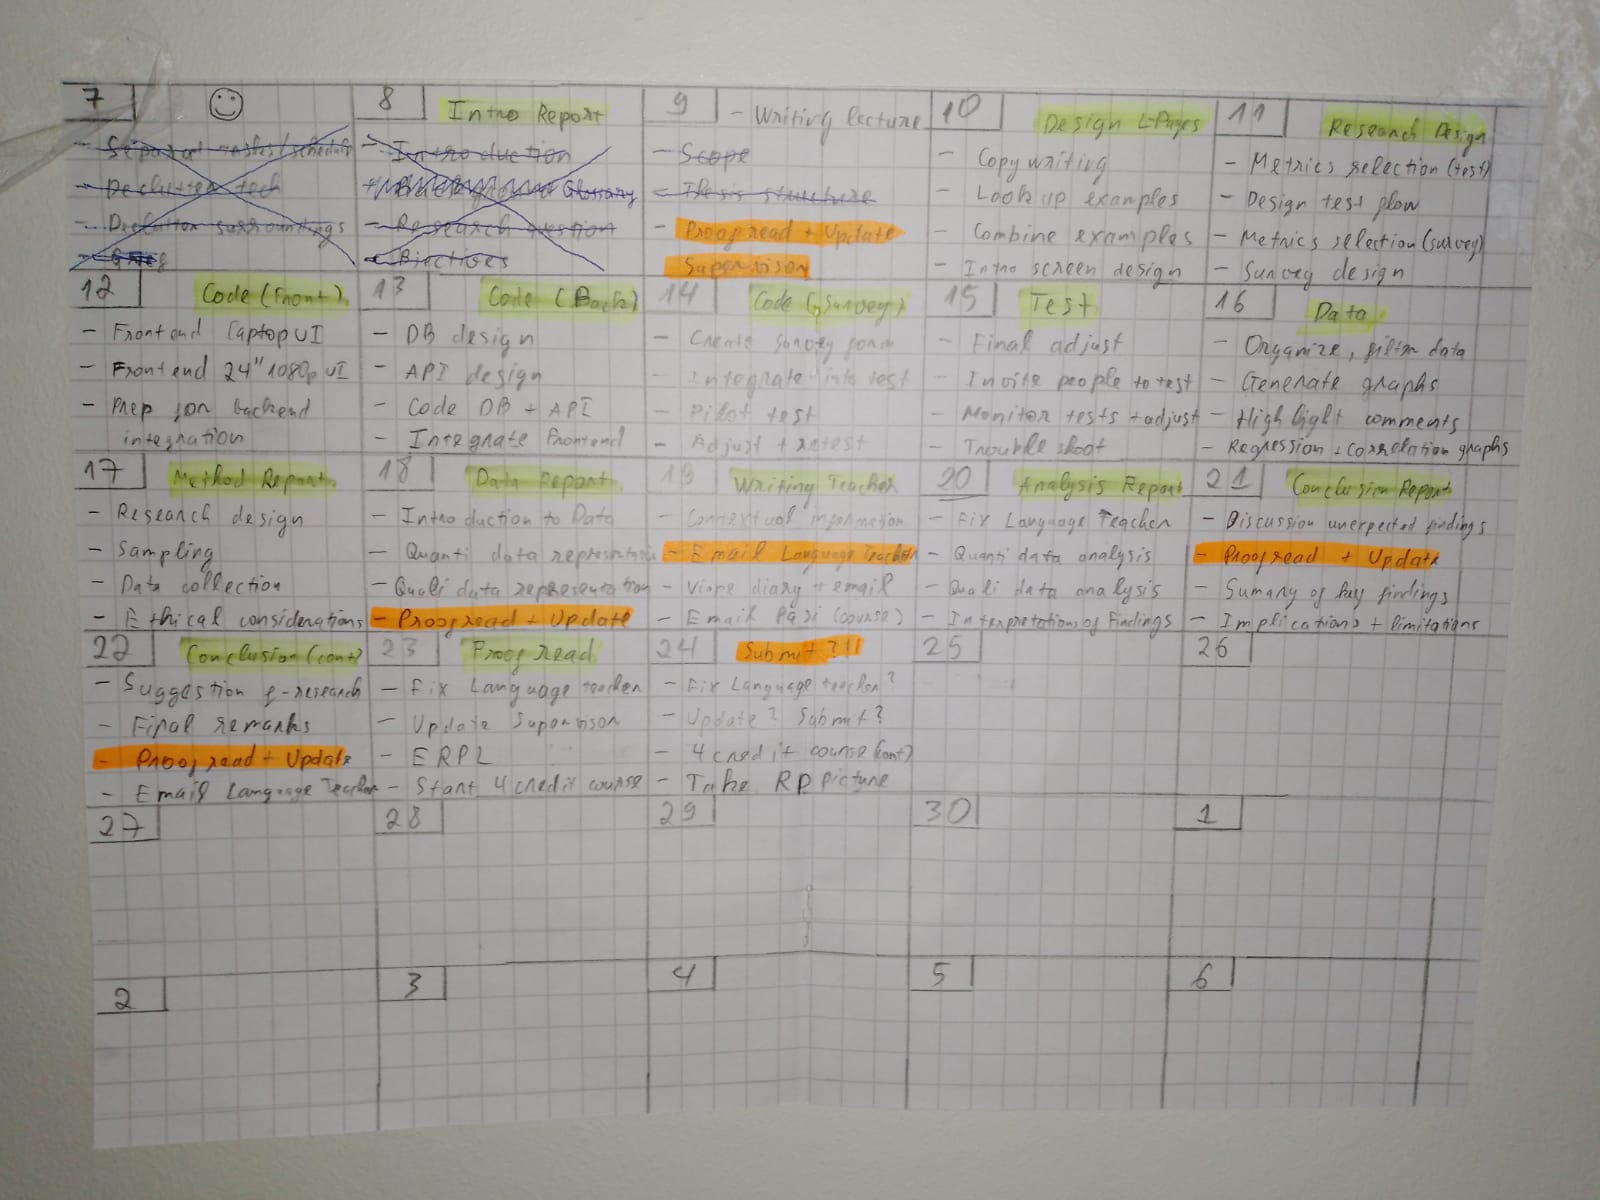 7
8 Intro Report
9 - Writing lecture
10 Design L-Pages
11 Research Design
- Declutter tech
- Declutter surroundings
- Introduction
Glossary
- Research question
- Objectives
- Scope
- Thesis structure
- Proofread + Update
Supervisor
- Copywriting
- Look up examples
- Combine examples
- Intro screen design
- Metrics selection (test)
- Design test flow
- Metrics selection (survey)
- Survey design
12 Code (Front)
- Frontend Laptop UI
- Frontend 24" 1080p UI
- Prep for backend
integration
13 Code (Back)
- DB design
- API design
- Code DB + API
- Integrate Frontend
14 Code (Survey)
- Create survey form
- Integrate into test
- Pilot test
- Adjust + retest
15 Test
- Final adjust
- Invite people to test
- Monitor tests + adjust
- Troubleshoot
16 Data
- Organize, filter data
- Generate graphs
- Highlight comments
- Regression + correlation graphs
17 Method Report
- Research design
- Sampling
- Data collection
- Ethical considerations
18 Data Report
- Introduction to Data
- Quanti data representation
- Quali data representation
- Proofread + Update
19 Writing Teacher
- Contextual information
- Email Language Teacher
- diary + email
- Email Pasi (course)
20 Analysis Report
- Fix Language Teacher
- Quanti data analysis
- Quali data analysis
- Interpretations of Findings
21 Conclusion Report
- Discussion unexpected findings
- Proofread + Update
- Sumary of key findings
- Implications + limitations
22 Conclusion (cont)
- Suggestion f-research
- Final remarks
- Proofread + Update
- Email Language Teacher
23 Proofread
- Fix Language teacher
- Update Supervisor
- ERPL
- Start 4 credit course
24 Submit?!!
- Fix Language teacher?
- Update? Submit?
- 4 credit course (cont)
- Take RP picture
25
26
27
28
29
30
1
2
3
4
5
6